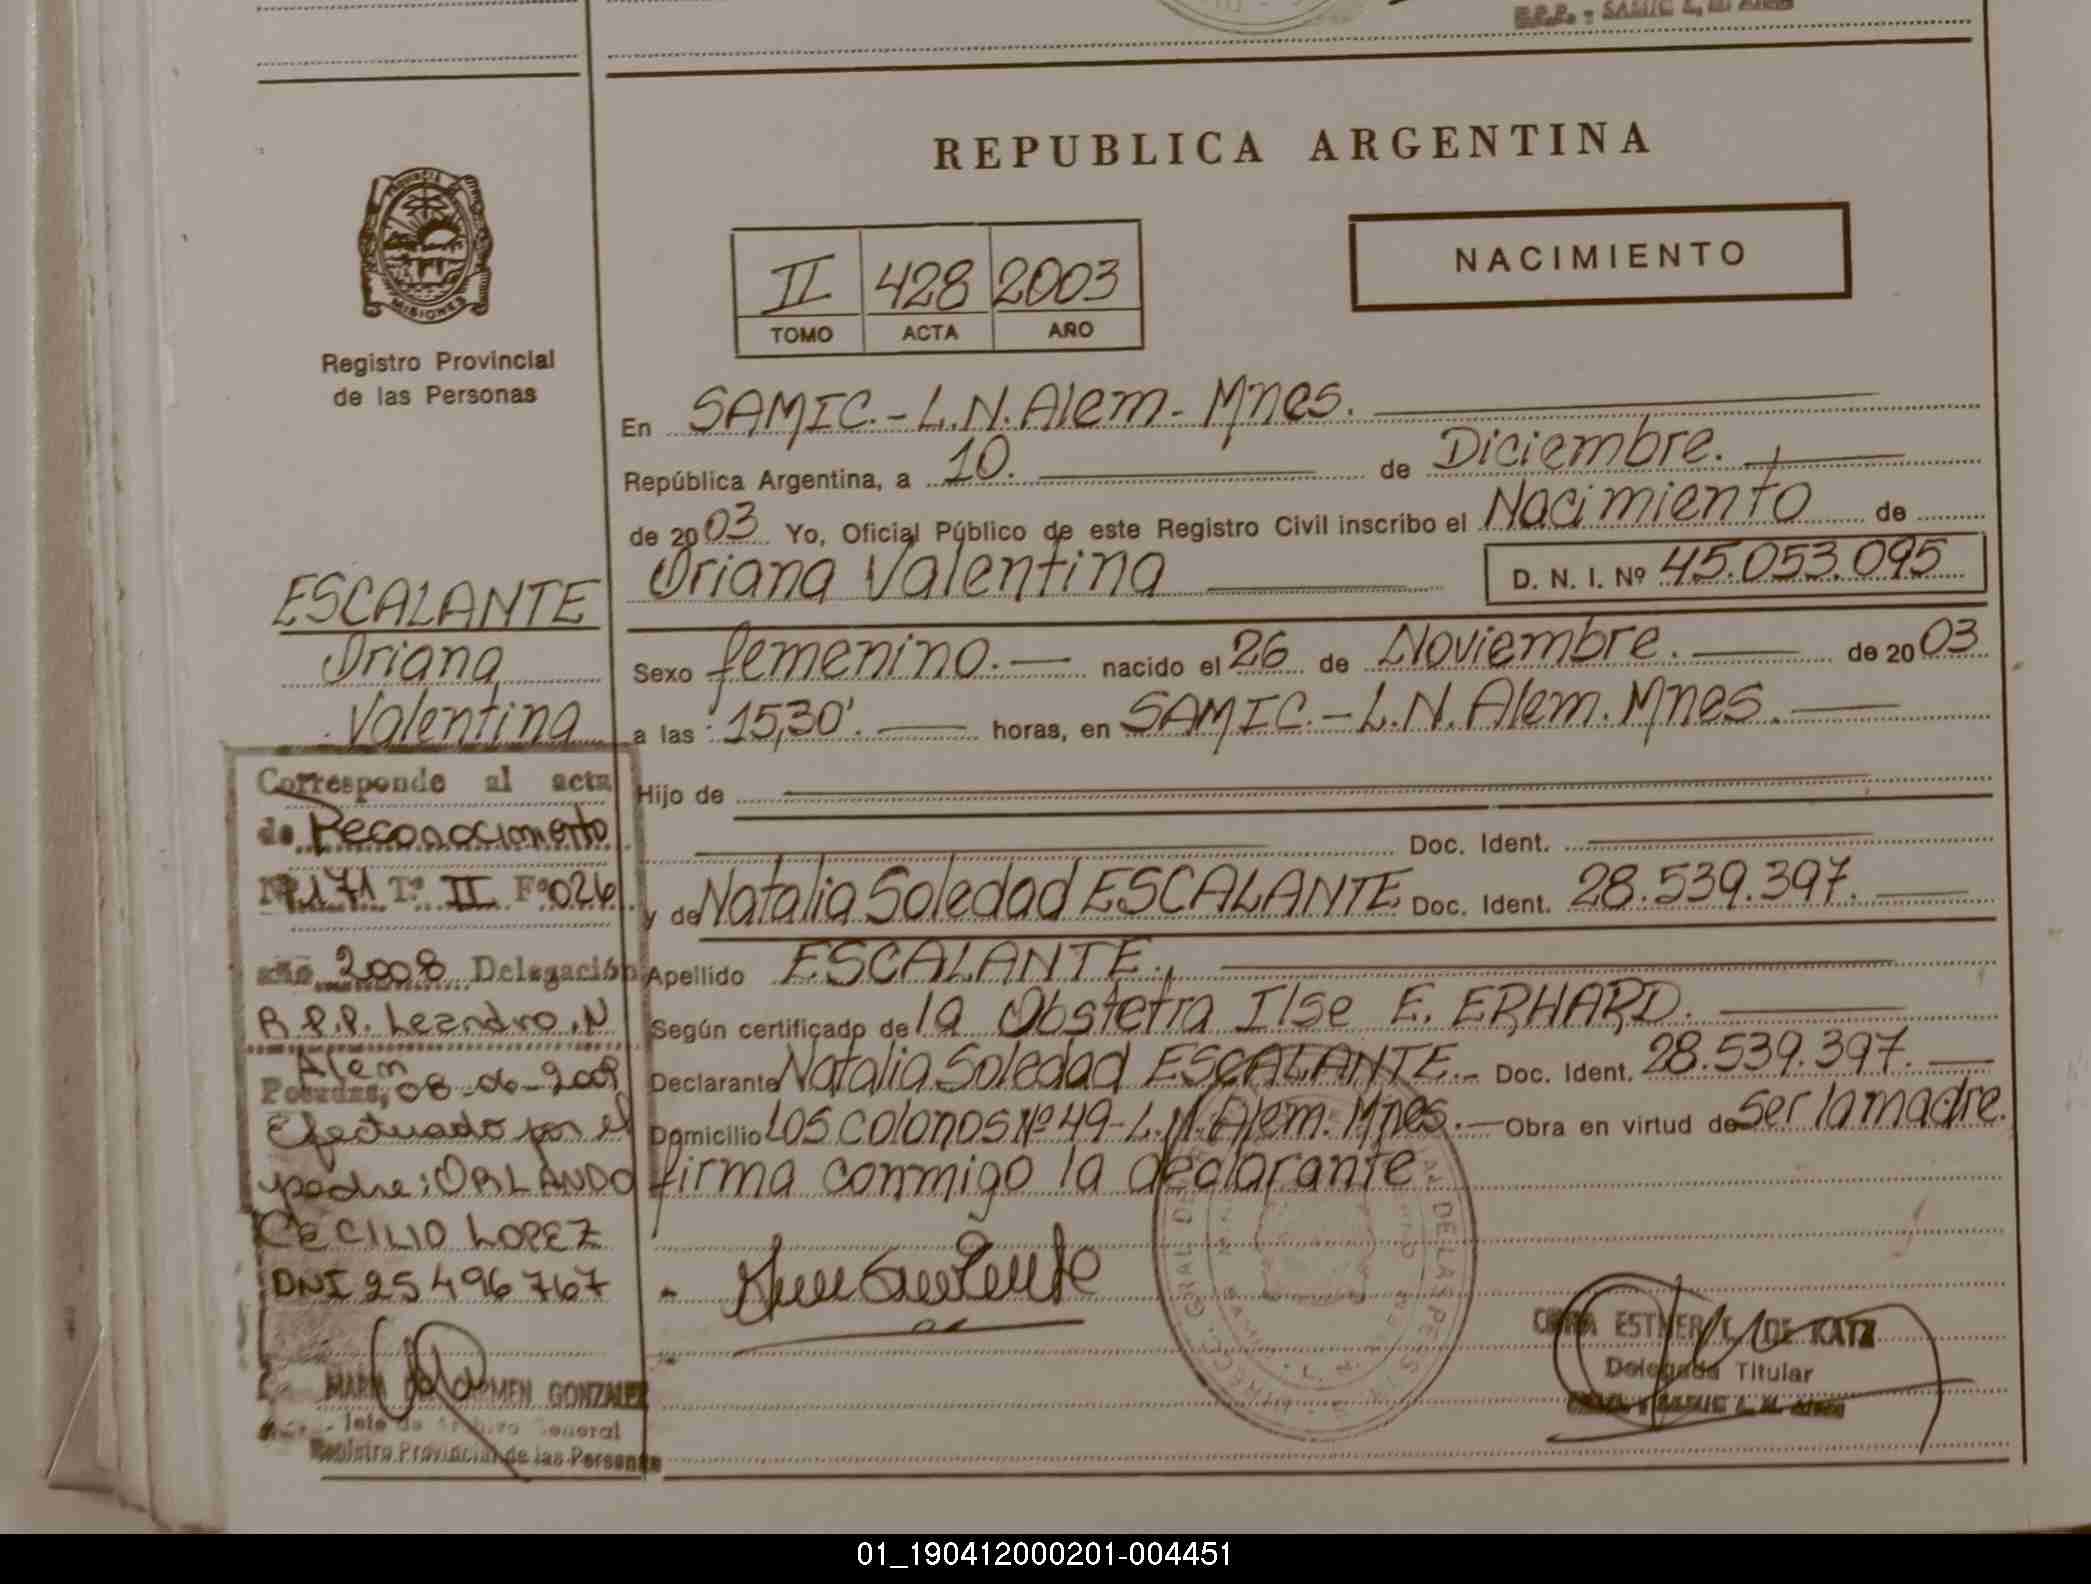 REPUBLICA ARGENTINA
PROVINCIA DE
MISIONES
Registro Provincial
de las Personas
II 428 2003
TOMO ACTA AÑO
NACIMIENTO
En SAMIC.-L.N.Alem.-Mnes.
República Argentina, a 10. de Diciembre.
de 2003 Yo, Oficial Público de este Registro Civil inscribo el Nacimiento de
Oriana Valentina D. N. I. Nº 45.053.095
Sexo femenino. nacido el 26 de Noviembre. de 2003
a las 15,30'. horas, en SAMIC.-L.N.Alem.Mnes.
Hijo de
Doc. Ident.
y de Natalia Soledad ESCALANTE Doc. Ident. 28.539.397.
Apellido ESCALANTE.
Según certificado de la Obstetra Ilse E. ERHARD.
Declarante Natalia Soledad ESCALANTE.- Doc. Ident. 28.539.397.
Domicilio LOS COLONOS Nº 49-L.N.Alem.Mnes.- Obra en virtud de Ser la madre.
firma conmigo la declarante.
ESTHER DE KATZ
Delegada Titular
ESCALANTE
Oriana
Valentina
Corresponde al acta
de Reconocimiento
Nº 171 Tº II Fº 026
año 2008 Delegación
R.P.P. Leandro.N
Alem
Posadas, 08-06-2009
Efectuado por el
padre: ORLANDO
CECILIO LOPEZ
DNI 25496767
MARIA DEL CARMEN GONZALEZ
Jefe de Archivo General
Registro Provincial de las Personas
01_190412000201-004451